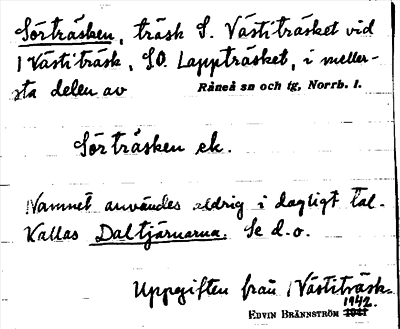 Sörträsken, träsk S. Västiträsket vid
1 Västiträsk, SO. Lappträsket, i meller-
sta delen av Råneå sn och tg, Norrb. l.
Sörträsken ek.
Namnet användes aldrig i dagligt tal.
Kallas Daltjärnarna. Se d.o.
Uppgiften från 1 Västiträsk.
1942.
EDVIN BRÄNNSTRÖM 1941